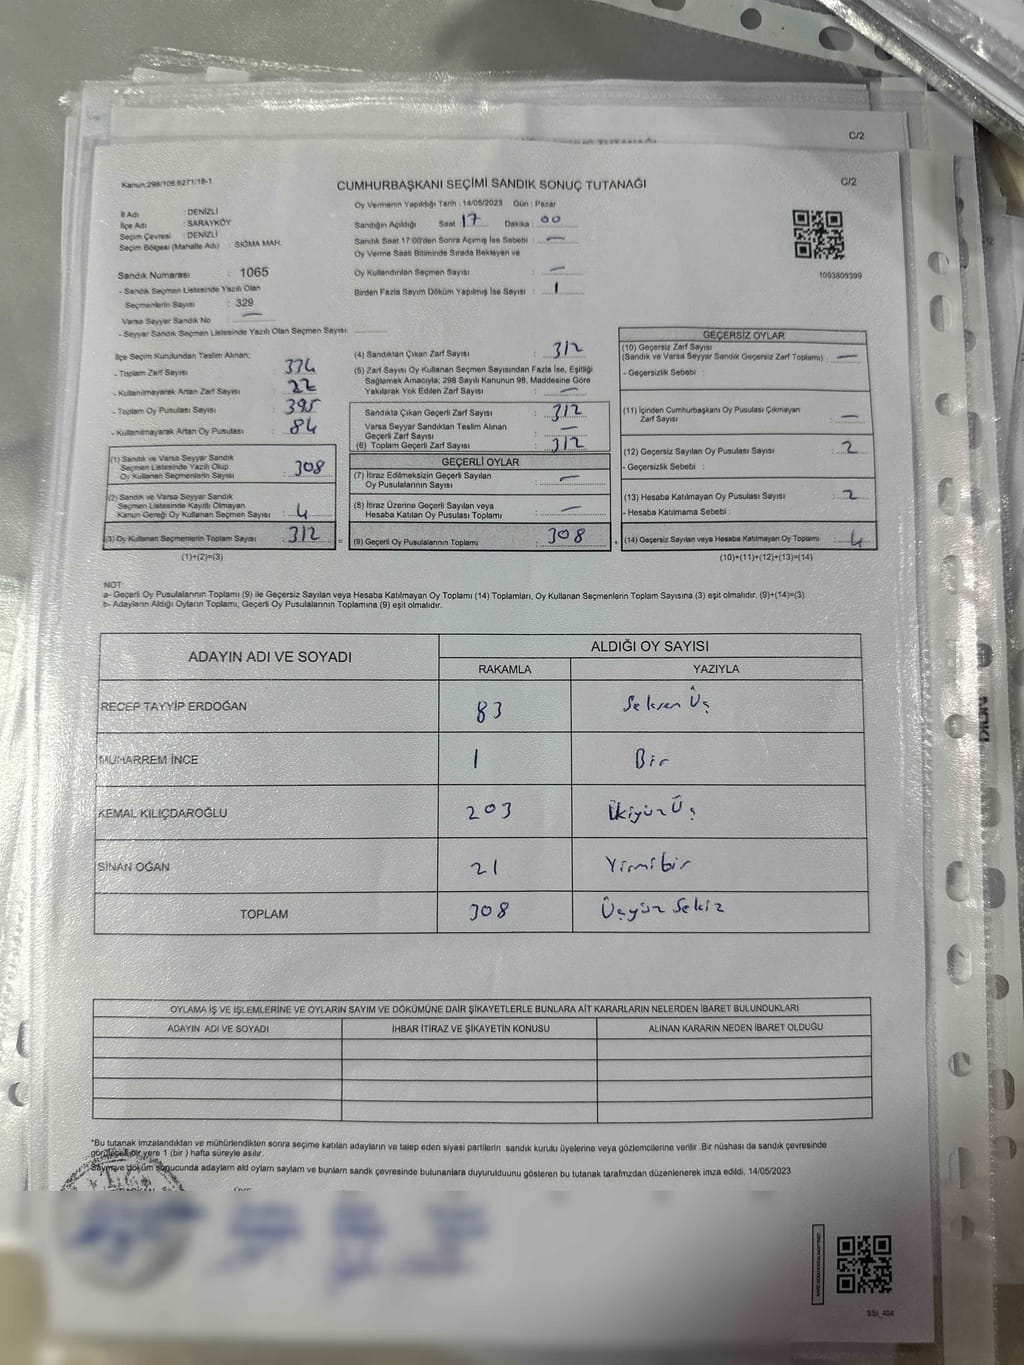 C/2
Kanun:298/105.6271/18-1
CUMHURBAŞKANI SEÇİMİ SANDIK SONUÇ TUTANAĞI
C/2
İl Adı : DENİZLİ
İlçe Adı : SARAYKÖY
Seçim Çevresi : DENİZLİ
Seçim Bölgesi (Mahalle Adı) : SIĞMA MAH.
Sandık Numarası : 1065
- Sandık Seçmen Listesinde Yazılı Olan
Seçmenlerin Sayısı : 329
Varsa Seyyar Sandık No : —
- Seyyar Sandık Seçmen Listesinde Yazılı Olan Seçmen Sayısı:
Oy Vermenin Yapıldığı Tarih : 14/05/2023 Gün : Pazar
Sandığın Açıldığı Saat 17 Dakika 00
Sandık Saat 17:00'den Sonra Açımış İse Sebebi : —
Oy Verme Saati Bitiminde Sırada Bekleyen ve
Oy Kullandırılan Seçmen Sayısı : —
Birden Fazla Sayım Döküm Yapılmış İse Sayısı : 1
1093809399
İlçe Seçim Kurulundan Teslim Alınan:
- Toplam Zarf Sayısı : 334
- Kullanılmayarak Artan Zarf Sayısı : 22
- Toplam Oy Pusulası Sayısı : 395
- Kullanılmayarak Artan Oy Pusulası : 84
(1) Sandık ve Varsa Seyyar Sandık
Seçmen Listesinde Yazılı Olup
Oy Kullanan Seçmenlerin Sayısı : 308
(2) Sandık ve Varsa Seyyar Sandık
Seçmen Listesinde Kayıtlı Olmayan
Kanun Gereği Oy Kullanan Seçmen Sayısı : 4
(3) Oy Kullanan Seçmenlerin Toplam Sayısı : 312
(1)+(2)=(3)
(4) Sandıktan Çıkan Zarf Sayısı : 312
(5) Zarf Sayısı Oy Kullanan Seçmen Sayısından Fazla İse, Eşitliği
Sağlamak Amacıyla; 298 Sayılı Kanunun 98. Maddesine Göre
Yakılarak Yok Edilen Zarf Sayısı : —
Sandıkta Çıkan Geçerli Zarf Sayısı : 312
Varsa Seyyar Sandıktan Teslim Alınan
Geçerli Zarf Sayısı : —
(6) Toplam Geçerli Zarf Sayısı : 312
GEÇERLİ OYLAR
(7) İtiraz Edilmeksizin Geçerli Sayılan
Oy Pusulalarının Sayısı : —
(8) İtiraz Üzerine Geçerli Sayılan veya
Hesaba Katılan Oy Pusulası Toplamı : —
= (9) Geçerli Oy Pusulalarının Toplamı : 308
GEÇERSİZ OYLAR
(10) Geçersiz Zarf Sayısı
(Sandık ve Varsa Seyyar Sandık Geçersiz Zarf Toplamı) : —
- Geçersizlik Sebebi :
(11) İçinden Cumhurbaşkanı Oy Pusulası Çıkmayan
Zarf Sayısı : —
(12) Geçersiz Sayılan Oy Pusulası Sayısı : 2
- Geçersizlik Sebebi :
(13) Hesaba Katılmayan Oy Pusulası Sayısı : 2
- Hesaba Katılmama Sebebi :
+ (14) Geçersiz Sayılan veya Hesaba Katılmayan Oy Toplamı : 4
(10)+(11)+(12)+(13)=(14)
NOT:
a- Geçerli Oy Pusulalarının Toplamı (9) ile Geçersiz Sayılan veya Hesaba Katılmayan Oy Toplamı (14) Toplamları, Oy Kullanan Seçmenlerin Toplam Sayısına (3) eşit olmalıdır. (9)+(14)=(3)
b- Adayların Aldığı Oyların Toplamı, Geçerli Oy Pusulalarının Toplamına (9) eşit olmalıdır.
ADAYIN ADI VE SOYADI ALDIĞI OY SAYISI
RAKAMLA YAZIYLA
RECEP TAYYİP ERDOĞAN 83 Seksen Üç
MUHARREM İNCE 1 Bir
KEMAL KILIÇDAROĞLU 203 İkiyüz Üç
SİNAN OĞAN 21 Yirmibir
TOPLAM 308 Üçyüz Sekiz
OYLAMA İŞ VE İŞLEMLERİNE VE OYLARIN SAYIM VE DÖKÜMÜNE DAİR ŞİKAYETLERLE BUNLARA AİT KARARLARIN NELERDEN İBARET BULUNDUKLARI
ADAYIN ADI VE SOYADI İHBAR İTİRAZ VE ŞİKAYETİN KONUSU ALINAN KARARIN NEDEN İBARET OLDUĞU
*Bu tutanak imzalandıktan ve mühürlendikten sonra seçime katılan adayların ve talep eden siyasi partilerin sandık kurulu üyelerine veya gözlemcilerine verilir .Bir nüshası da sandık çevresinde
görülecek bir yere 1 (bir ) hafta süreyle asılır.
Sayım ve döküm sonucunda adayların ald oyların sayların ve bunların sandk çevresinde bulunanlara duyurulduunu gösteren bu tutanak tarafmzdan düzenlenerek imza edildi. 14/05/2023
SSI_404